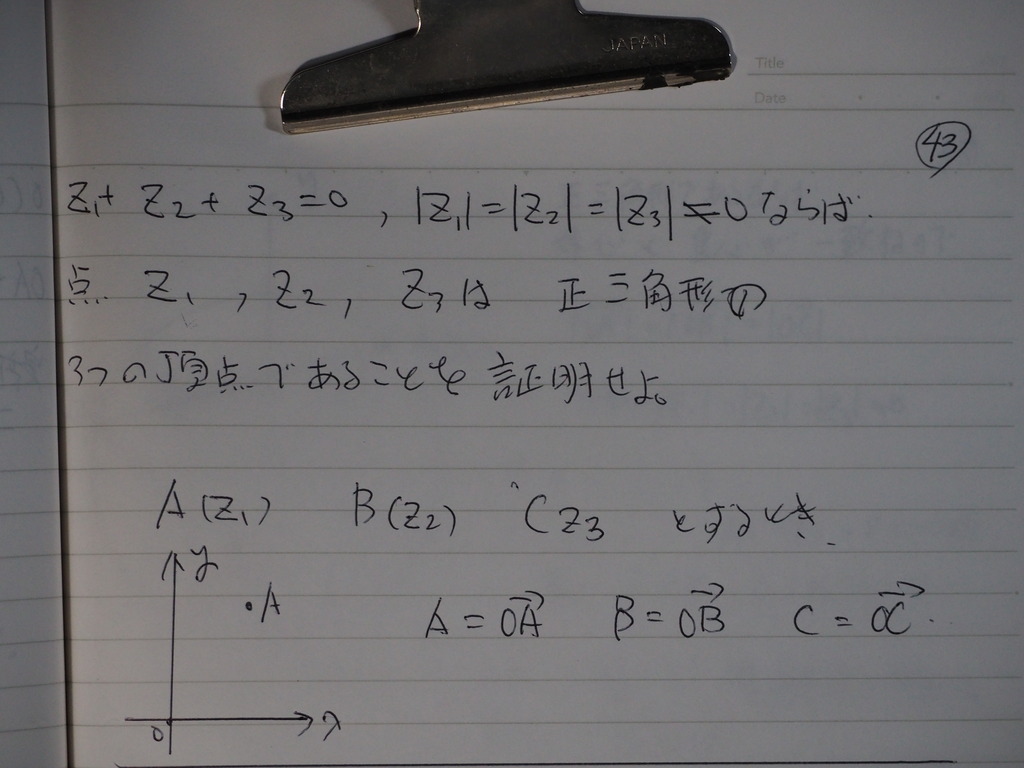 JAPAN
Title
Date
43
Z₁+ Z₂ + Z₃=0 , |Z₁|=|Z₂|=|Z₃|≠0ならば
点 Z₁ , Z₂ , Z₃は 正三角形の
3つの頂点であることを証明せよ。
A(Z₁) B(Z₂) C Z₃ とするとき
y
・A
A = OA→ B = OB→ C = OC→.
0 x